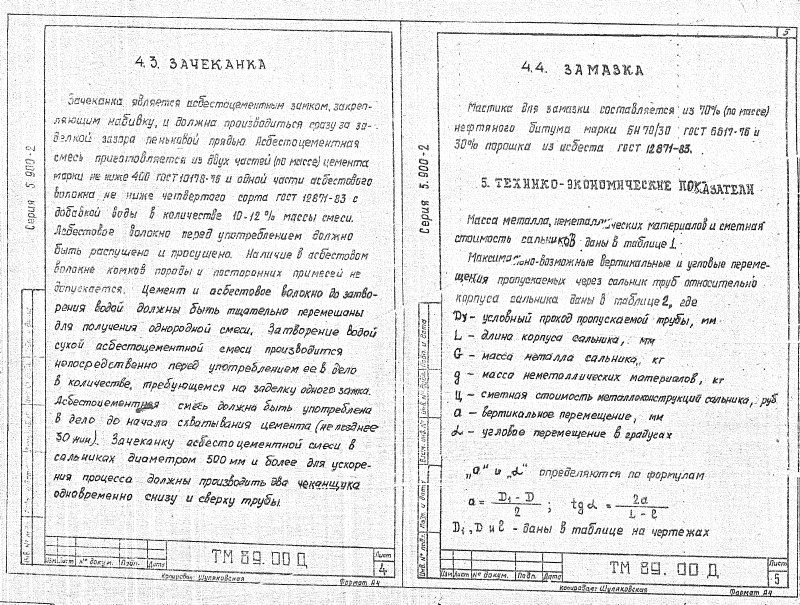 4.3. ЗАЧЕКАНКА
Зачеканка является асбестоцементным замком, закреп-
ляющим набивку, и должна производиться сразу за за-
делкой зазора пеньковой прядью. Асбестоцементная
смесь приготовляется из двух частей (по массе) цемента
марки не ниже 400 ГОСТ 10178-76 и одной части асбестового
волокна не ниже четвертого сорта ГОСТ 12871-83 с
добавкой воды в количестве 10-12% массы смеси.
Асбестовое волокно перед употреблением должно
быть распушено и просушено. Наличие в асбестовом
волокне комков породы и посторонних примесей не
допускается. Цемент и асбестовое волокно до затво-
рения водой должны быть тщательно перемешаны
для получения однородной смеси. Затворение водой
сухой асбестоцементной смеси производится
непосредственно перед употреблением ее в дело
в количестве, требующемся на заделку одного замка.
Асбестоцементная смесь должна быть употреблена
в дело до начала схватывания цемента (не позднее
30 мин). Зачеканку асбестоцементной смеси в
сальниках диаметром 500 мм и более для ускоре-
ния процесса должны производить два чеканщика
одновременно снизу и сверху трубы.
Серия 5.900-2
Изм. Лист № докум. Подп. Дата
ТМ 89.00 Д
Лист
4
Копировал: Шуляковская
Формат А4
5
4.4. ЗАМАЗКА
Мастика для замазки составляется из 70% (по массе)
нефтяного битума марки БН 70/30 ГОСТ 6617-76 и
30% порошка из асбеста ГОСТ 12871-83.
5. ТЕХНИКО-ЭКОНОМИЧЕСКИЕ ПОКАЗАТЕЛИ
Масса металла, неметаллических материалов и сметная
стоимость сальников даны в таблице 1.
Максимально-возможные вертикальные и угловые переме-
щения пропускаемых через сальник труб относительно
корпуса сальника даны в таблице 2, где
Dу - условный проход пропускаемой трубы, мм
L - длина корпуса сальника, мм
G - масса металла сальника, кг
g - масса неметаллических материалов, кг
Ц - сметная стоимость металлоконструкций сальника, руб.
а - вертикальное перемещение, мм
α - угловое перемещение в градусах
„а" и „α" определяются по формулам
a = (D₁ - D) / 2 ; tg α = 2a / (L - ℓ)
D₁, D и ℓ - даны в таблице на чертежах
Серия 5.900-2
Изм. Лист № докум. Подп. Дата
ТМ 89.00 Д
Лист
5
Копировал: Шуляковская
Формат А4